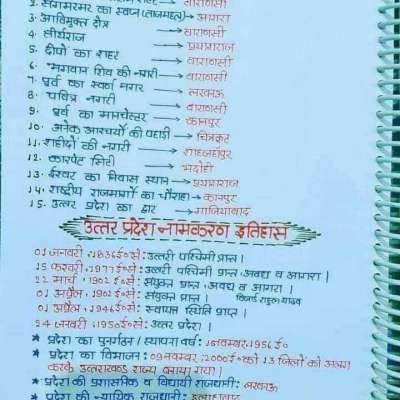 → वाराणसी
2. संगमरमर का स्वप्न (ताजमहल) → आगरा
3. आविमुक्त क्षेत्र → वाराणसी
4. तीर्थराज → प्रयागराज
5. दीपों का शहर → वाराणसी
6. भगवान शिव की नगरी → वाराणसी
7. पूर्व का स्वर्ण नगर → लखनऊ
8. पवित्र नगरी → वाराणसी
9. पूर्व का मानचेस्टर → कानपुर
10. अनेक आश्चर्यों की पहाड़ी → चित्रकूट
11. शहीदों की नगरी → शाहजहाँपुर
12. कारपेट सिटी → भदोही
13. ईश्वर का निवास स्थान → प्रयागराज
14. राष्ट्रीय राजमार्गों का चौराहा → कानपुर
15. उत्तर प्रदेश का द्वार → गाजियाबाद
उत्तर प्रदेश नामकरण इतिहास
01 जनवरी, 1836 ई० से : उत्तरी पश्चिमी प्रान्त ।
15 फरवरी, 1877 ई० से : उत्तरी पश्चिमी प्रान्त अवध व आगरा ।
22 मार्च, 1902 ई० से : संयुक्त प्रान्त, अवध व आगरा ।
01 अप्रैल, 1902 ई० से : संयुक्त प्रान्त ।
01 अप्रैल, 1946 ई० से : स्वायत्त स्थिति प्राप्त ।
24 जनवरी, 1950 ई० से : उत्तर प्रदेश ।
* प्रदेश का पुनर्गठन / स्थापना वर्ष : 1 नवम्बर, 1956 ई०
* प्रदेश का विभाजन : 09 नवम्बर, 2000 ई० को 13 जिलों को अलग
करके उत्तराखण्ड राज्य बनाया गया ।
* प्रदेश की प्रशासनिक व विधायी राजधानी : लखनऊ
* प्रदेश की न्यायिक राजधानी : इलाहाबाद